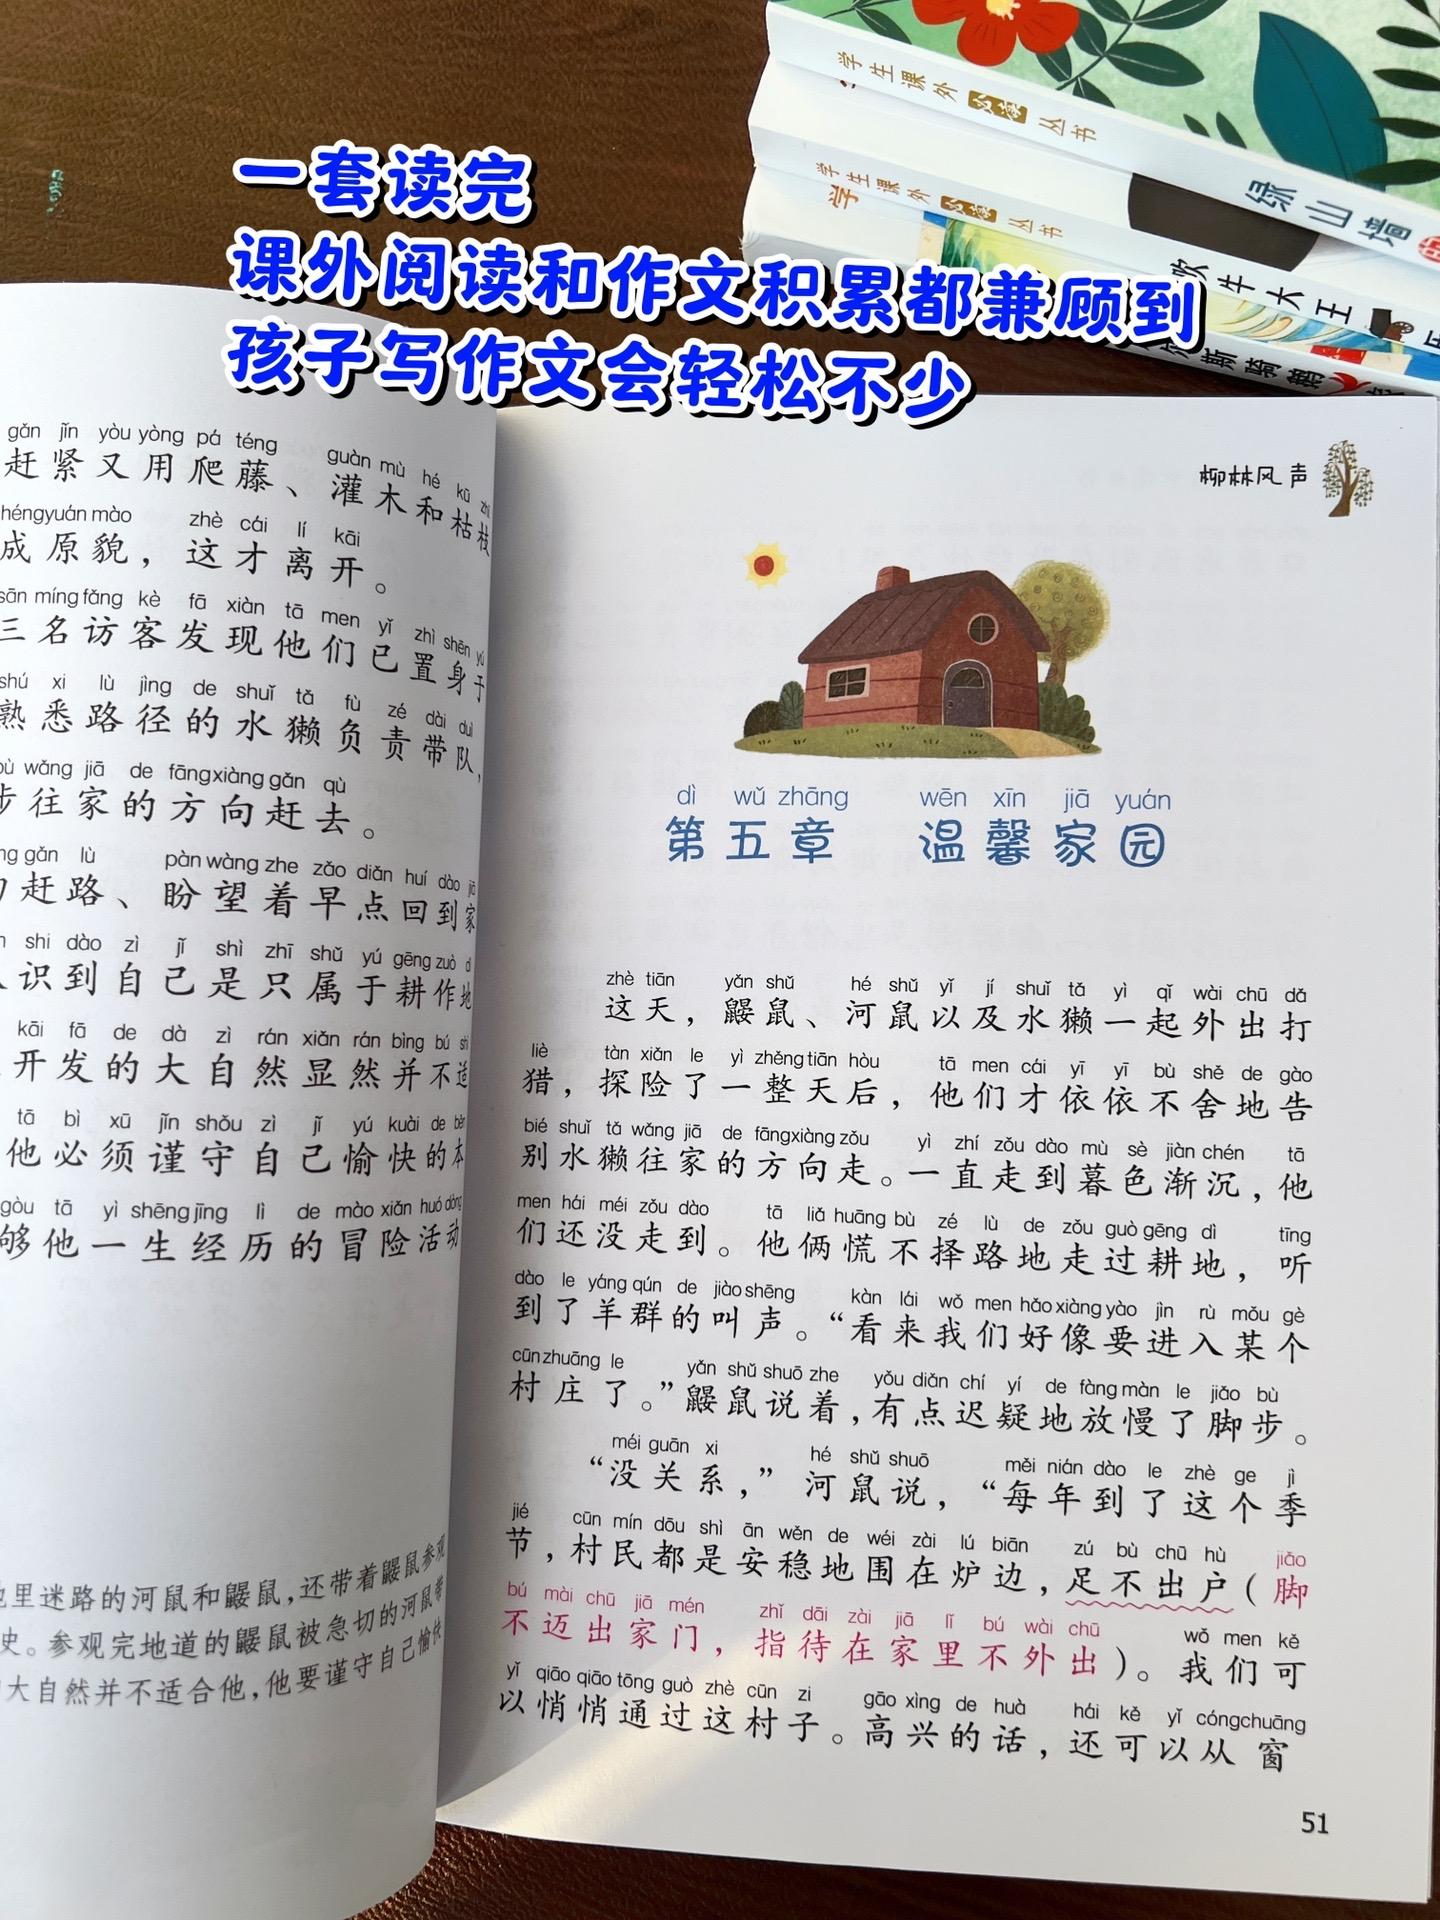 学生课外必读丛书
绿山墙
学生课外必读丛书
学
吹牛大王
尔斯骑鹅
一套读完
课外阅读和作文积累都兼顾到
孩子写作文会轻松不少
gǎn jǐn yòu yòng pá téng guàn mù hé kū zhī
赶紧又用爬藤、灌木和枯枝
chéngyuán mào zhè cái lí kāi
成原貌，这才离开。
sān míng fǎng kè fā xiàn tā men yǐ zhì shēn yú
三名访客发现他们已置身于
shú xi lù jìng de shuǐ tǎ fù zé dài duì
熟悉路径的水獭负责带队，
bù wǎng jiā de fāngxiàng gǎn qù
步往家的方向赶去。
gǎn lù pàn wàng zhe zǎo diǎn huí dào jiā
赶路、盼望着早点回到家
shi dào zì jǐ shì zhī shǔ yú gēng zuò dì
识到自己是只属于耕作地
kāi fā de dà zì rán xiǎn rán bìng bú shì
开发的大自然显然并不适
tā bì xū jǐn shǒu zì jǐ yú kuài de běn
他必须谨守自己愉快的本
gòu tā yì shēng jīng lì de mào xiǎn huó dòng
够他一生经历的冒险活动
里迷路的河鼠和鼹鼠，还带着鼹鼠参观
史。参观完地道的鼹鼠被急切的河鼠带
大自然并不适合他，他要谨守自己愉快
柳林风声
dì wǔ zhāng wēn xīn jiā yuán
第五章 温馨家园
zhè tiān yǎn shǔ hé shǔ yǐ jí shuǐ tǎ yì qǐ wài chū dǎ
这天，鼹鼠、河鼠以及水獭一起外出打
liè tàn xiǎn le yì zhěng tiān hòu tā men cái yī yī bù shě de gào
猎，探险了一整天后，他们才依依不舍地告
bié shuǐ tǎ wǎng jiā de fāngxiàng zǒu yì zhí zǒu dào mù sè jiàn chén tā
别水獭往家的方向走。一直走到暮色渐沉，他
men hái méi zǒu dào tā liǎ huāng bù zé lù de zǒu guò gēng dì tīng
们还没走到。他俩慌不择路地走过耕地，听
dào le yáng qún de jiào shēng kàn lái wǒ men hǎo xiàng yào jìn rù mǒu gè
到了羊群的叫声。“看来我们好像要进入某个
cūn zhuāng le yǎn shǔ shuō zhe yǒu diǎn chí yí de fàng màn le jiǎo bù
村庄了。”鼹鼠说着，有点迟疑地放慢了脚步。
méi guān xi hé shǔ shuō měi nián dào le zhè ge jì
“没关系，”河鼠说，“每年到了这个季
jié cūn mín dōu shì ān wěn de wéi zài lú biān zú bù chū hù jiǎo
节，村民都是安稳地围在炉边，足不出户（脚
bú mài chū jiā mén zhǐ dāi zài jiā lǐ bú wài chū wǒ men kě
不迈出家门，指待在家里不外出）。我们可
yǐ qiāo qiāo tōng guò zhè cūn zi gāo xìng de huà hái kě yǐ cóngchuāng
以悄悄通过这村子。高兴的话，还可以从窗
51